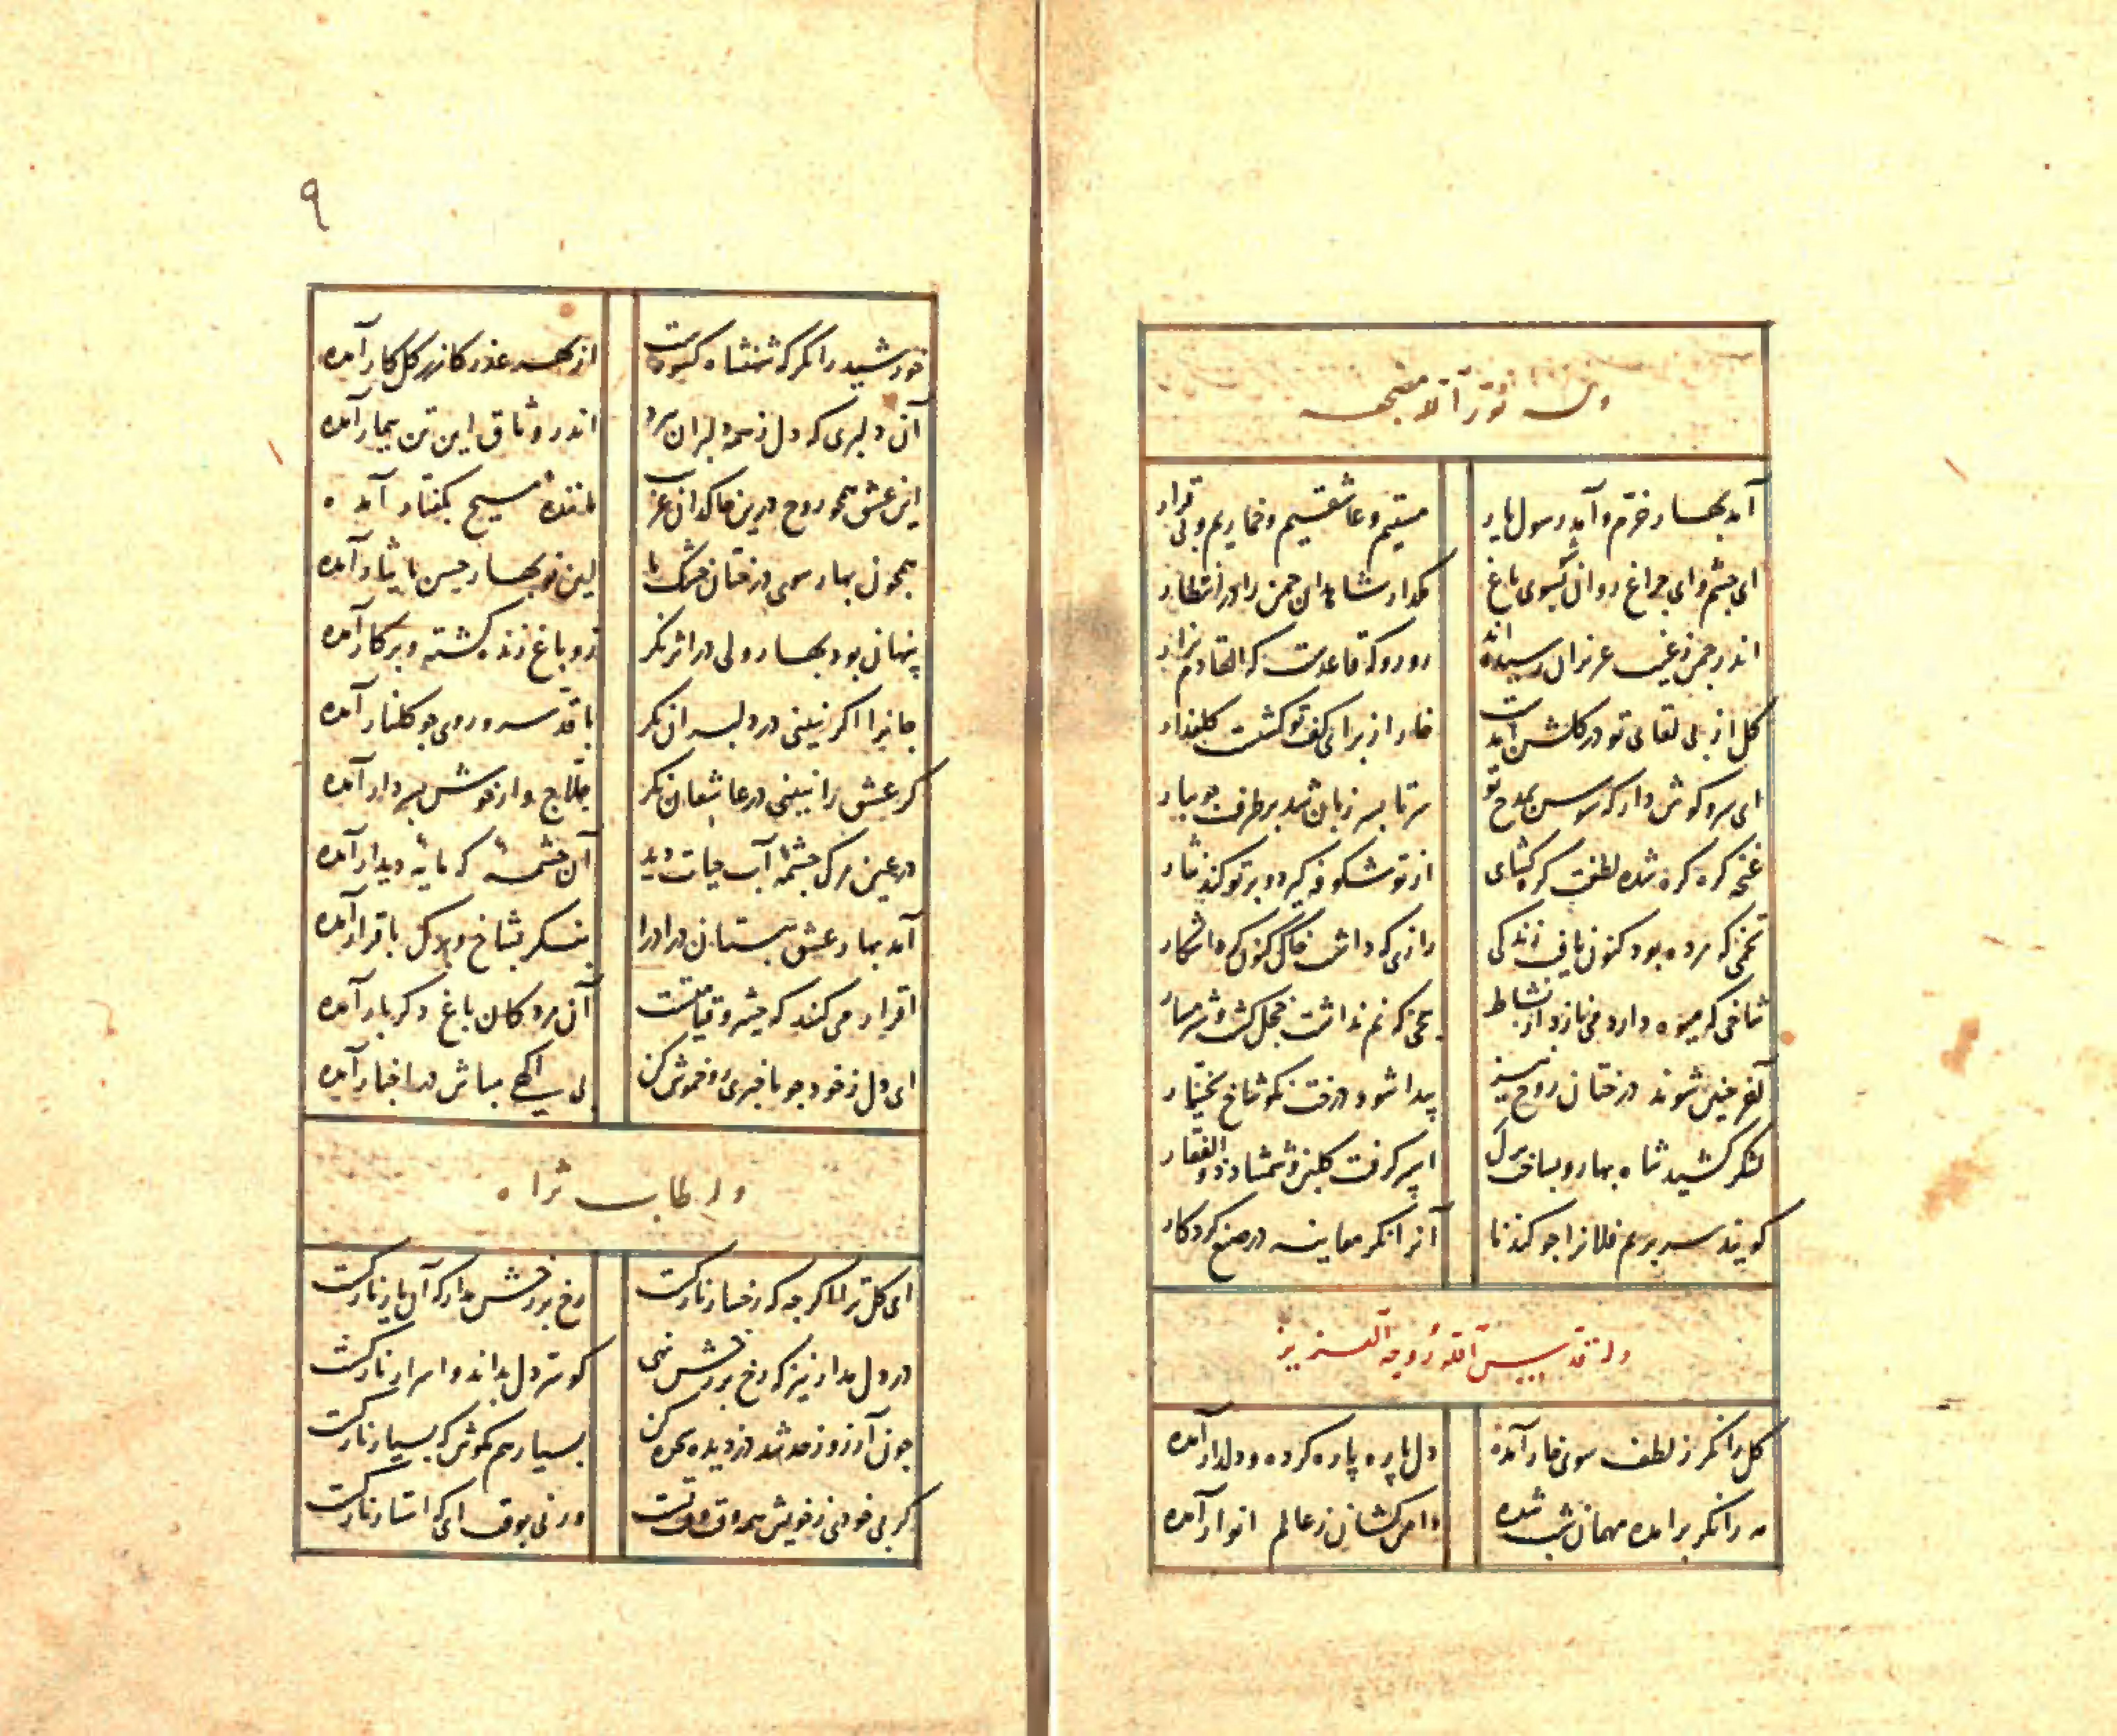 وله نور الله مضجعه
آمد بهار خرم و آمد رسول یار
مستیم و عاشقیم و خماریم و بی قرار
ای چشم و ای چراغ روان کن بسوی باغ
مگذار شاهدان چمن را در انتظار
اندر چمن ز غیب عزیزان رسیده اند
رو رو که قاعدست که القادم یزار
کل از پی لقای تو در کلشن آمدست
خار از برای کف تو کشت کلعذار
ای سرو کوش دار که سوسن بمدح تو
سر تا بسر زبان شد بر طرف جویبار
غنچه کره کره شده لطفت کره کشای
از تو شکوفه کیرد و بر تو کند نثار
تخمی که مرده بود کنون یافت زندکی
رازی که داشت خاک کنون کرد آشکار
شاخی که میوه دارد می نازد از نشاط
بیخی که نم نداشت خجل کشت و شرمسار
آخر چنین شوند درختان روح نیز
پیدا شود درخت نکو شاخ بختیار
لشکر کشید شاه بهار و بساخت برک
اسپر کرفت کلبن و شمشاد ذوالفقار
کویند سر بریم فلانرا چو کندنا
آنرا نکر معاینه در صنع کردکار
وله قدس الله روحه العزیز
کل را نکر ز لطف سوی خار آمده
دل پاره پاره کرده و دلدار آمده
مه را نکر برآمده مهمان شب شده
دامن کشان ز عالم انوار آمده
٩
خورشید را نکر که شهنشاه کبوست
از بهر عذر کازر کلکار آمده
آن دلبری که دل ز همه دلبران برد
اندر وثاق این تن بیمار آمده
این عشق همچو روح درین خاکدان غریب
ماننده مسیح بکفتار آمده
همچون بهار سوی درختان خشک ما
این نوبهار حسن بایثار آمده
پنهان بود بهار ولی در اثر نکر
زو باغ زنده کشته و بر کار آمده
جانرا اکر نبینی در دلبران نکر
با قد سرو و روی چو کلنار آمده
کر عشق را نبینی در عاشقان نکر
حلاج وار خوش بسر دار آمده
در عین مرک چشمه آب حیات دید
آن چشمه که مایه دیدار آمده
آمد بهار عشق ببستان در ادرا
بنکر بشاخ و برک باقرار آمده
اقرار می کند که حشر و قیامتست
آن مردکان باغ دکر بار آمده
ای دل ز خود چو باخبری رو خموش کن
بی آکهی مباش در اخبار آمده
وله طاب ثراه
ای کل ترا اکرچه که رخسار نازکست
رخ بر رخش مدار که آن یار نازکست
در دل مدار نیز که رخ بر رخش نهی
کو سر دل بداند و اسرار نازکست
چون آرزو ز حد شد دزدیده سجده کن
بسیار هم مکوش که بسیار نازکست
کر بی خودی ز خویش همه وقت وقتست
ور نی بوقت آی که استار نازکست